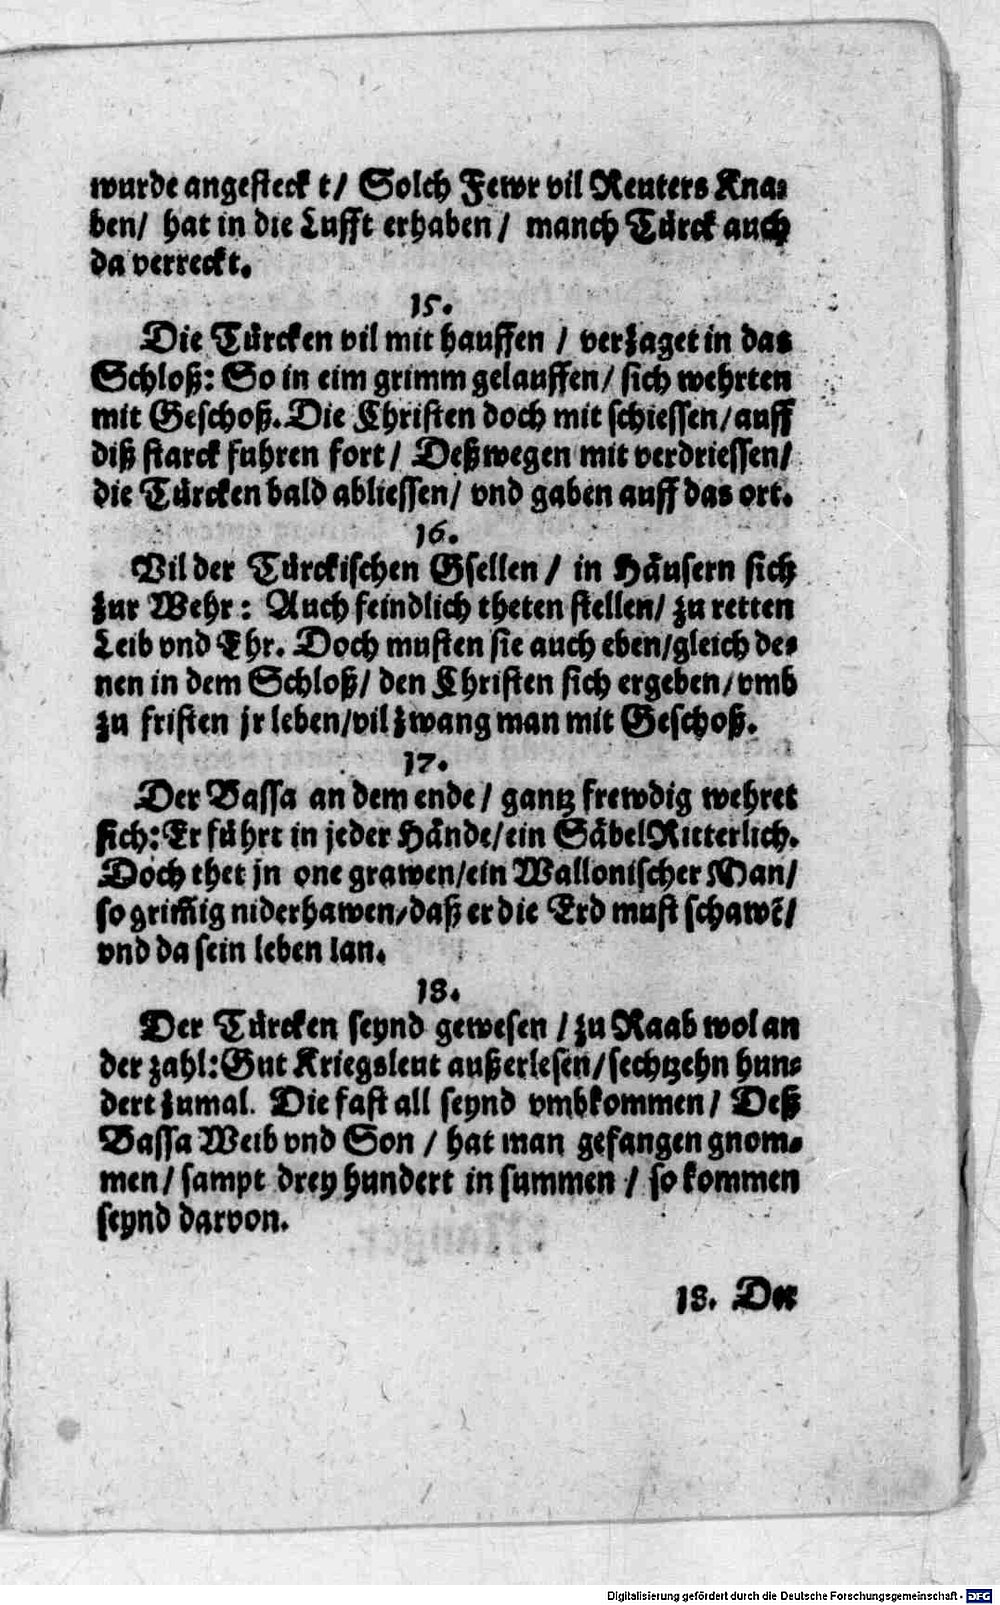 wurde angesteckt/ Solch Fewr vil Reuters Kna-
ben/ hat in die Lufft erhaben/ manch Türck auch
da verreckt.
15.
Die Türcken vil mit hauffen / verzaget in das
Schloß: So in eim grimm gelauffen/ sich wehrten
mit Geschoß. Die Christen doch mit schiessen/ auff
diß starck fuhren fort/ Deßwegen mit verdriessen/
die Türcken bald abliessen/ vnd gaben auff das ort.
16.
Vil der Türckischen Gsellen / in Häusern sich
zur Wehr: Auch feindlich theten stellen/ zu retten
Leib vnd Ehr. Doch musten sie auch eben/ gleich de-
nen in dem Schloß/ den Christen sich ergeben/ vmb
zu fristen jr leben/ vil zwang man mit Geschoß.
17.
Der Bassa an dem ende/ gantz frewdig wehret
sich: Er führt in jeder Hände/ ein Säbel Ritterlich.
Doch thet jn one grawen/ ein Wallonischer Man/
so grim̃ig niderhawen/ daß er die Erd must schawẽ/
vnd da sein leben lan.
18.
Der Türcken seynd gewesen / zu Raab wol an
der zahl: Gut Kriegsleut außerlesen/ sechtzehn hun-
dert zumal. Die fast all seynd vmbkommen/ Deß
Bassa Weib vnd Son / hat man gefangen gnom-
men/ sampt drey hundert in summen / so kommen
seynd darvon.
18. Der
Digitalisierung gefördert durch die Deutsche Forschungsgemeinschaft - DFG